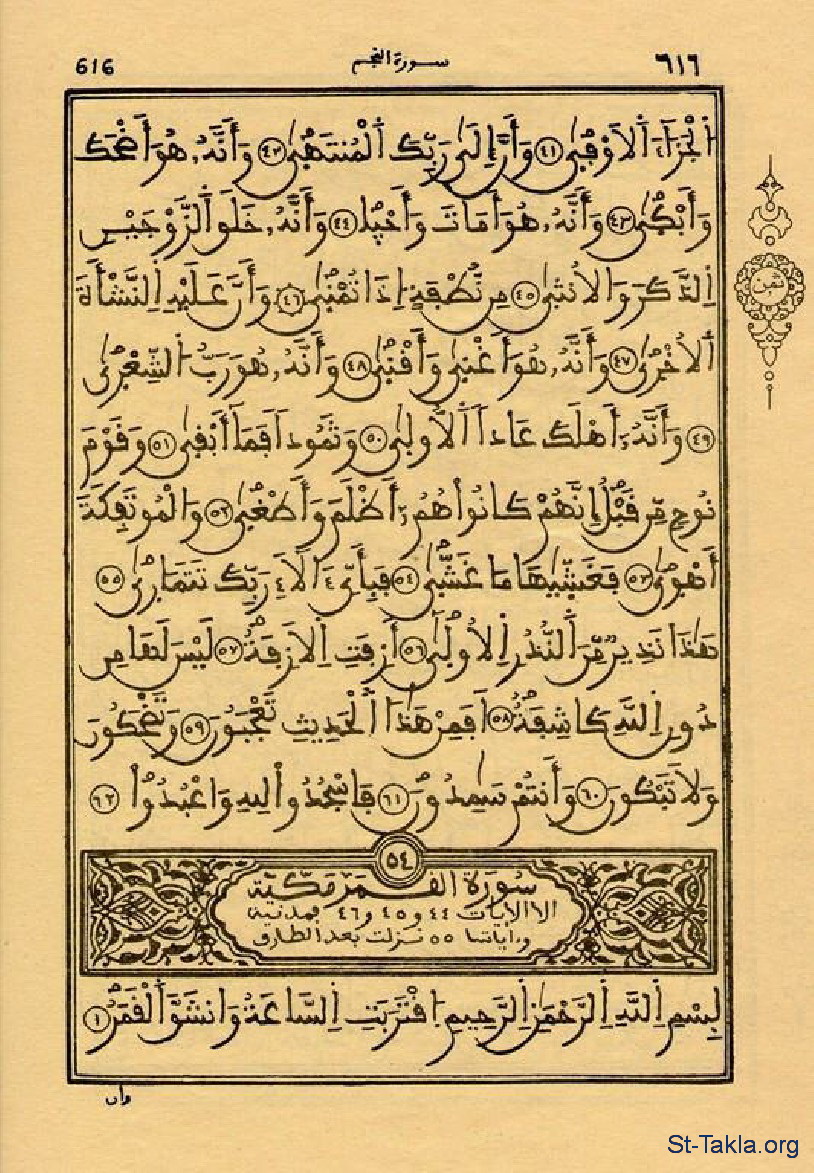 616 سورة النجم ٦١٦
اَلْجَزَآءَ اَلَاوْفۭيٰ ٤١ وَأَنَّ إِلَيٰ رَبِّكَ اَلْمُنتَهۭيٰ ٤٢ وَأَنَّهُۥ هُوَ أَضْحَكَ
وَأَبْكۭيٰ ٤٣ وَأَنَّهُۥ هُوَ أَمَاتَ وَأَحْيۭا ٤٤ وَأَنَّهُۥ خَلَقَ اَلزَّوْجَيْنِ
اِلذَّكَرَ وَالُانثۭيٰ ٤٥ مِن نُّطْفَةٍ اِذَا تُمْنۭيٰ ٤٦ وَأَنَّ عَلَيْهِ اِلنَّشْأَةَ
اَلُاخْرۭيٰ ٤٧ وَأَنَّهُۥ هُوَ أَغْنۭيٰ وَأَقْنۭيٰ ٤٨ وَأَنَّهُۥ هُوَ رَبُّ اَلشِّعْرۭيٰ
٤٩ وَأَنَّهُۥٓ أَهْلَكَ عَاداً اَلُاولۭيٰ ٥٠ وَثَمُوداً فَمَآ أَبْقۭيٰ ٥١ وَقَوْمَ
نُوحٍ مِّن قَبْلُ إِنَّهُمْ كَانُواْ هُمُۥٓ أَظْلَمَ وَأَطْغۭيٰ ٥٢ وَالْمُوتَفِكَةَ
أَهْوۭيٰ ٥٣ فَغَشّۭيٰهَا مَا غَشّۭيٰ ٥٤ فَبِأَيِّ ءَالَآءِ رَبِّكَ تَتَمَارۭيٰ ٥٥
هَٰذَا نَذِيرٌ مِّنَ اَلنُّذُرِ اِلُاولۭيٰ ٥٦ أَزِفَتِ اِلَازِفَةُ ٥٧ لَيْسَ لَهَا مِن
دُونِ اِللَّهِ كَاشِفَةٌ ٥٨ اَفَمِنْ هَٰذَا اَلْحَدِيثِ تَعْجَبُونَ ٥٩ وَتَضْحَكُونَ
وَلَا تَبْكُونَ ٦٠ وَأَنتُمْ سَٰمِدُونَ ٦١ فَاسْجُدُواْ لِلهِ وَاعْبُدُواْ ٦٢
ثمن
٥٤
سورة القمر مكية
الا الايات ٤٤ و ٤٥ و ٤٦ فمدنية
وءاياتها ٥٥ نزلت بعد الطارق
بِسْمِ اِللَّهِ اِلرَّحْمَٰنِ اِلرَّحِيمِ اِقْتَرَبَتِ اِلسَّاعَةُ وَانشَقَّ اَلْقَمَرُ ١
وإن
St-Takla.org